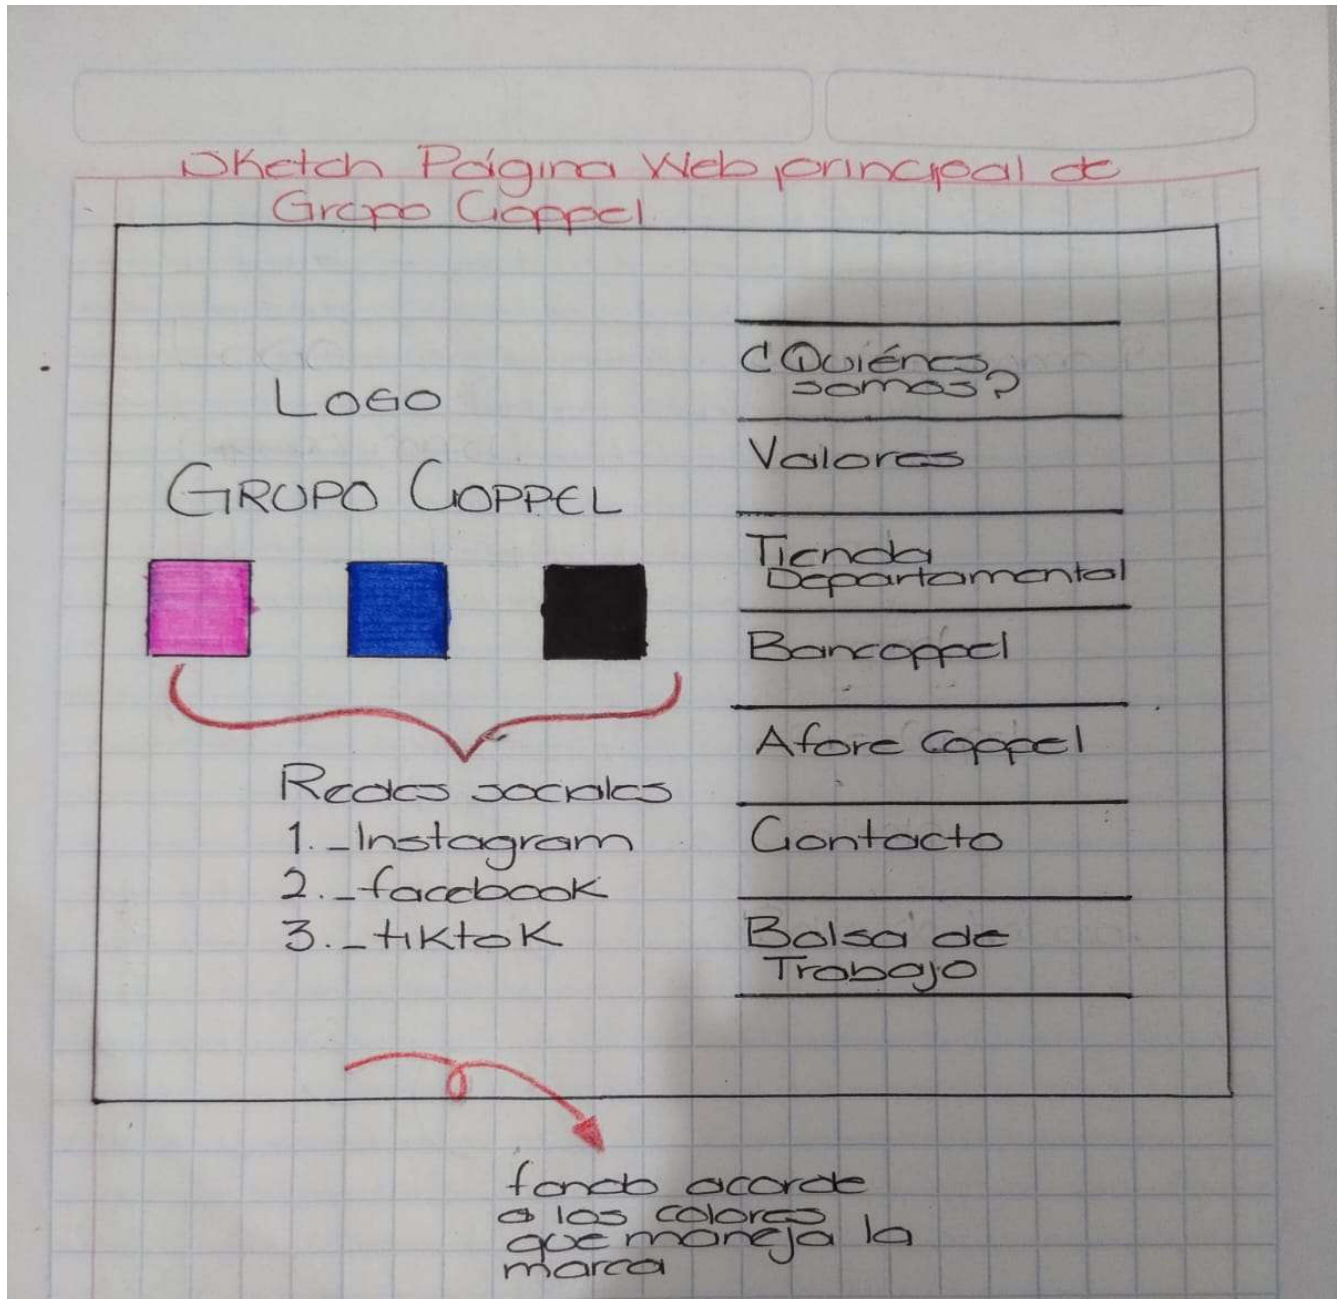 Sketch Página Web principal de
Grupo Coppel.
LOGO
GRUPO COPPEL
Redes sociales
1._Instagram
2._facebook
3._tiktok
¿Quiénes
somos?
Valores
Tienda
Departamental
Bancoppel
Afore Coppel
Contacto
Bolsa de
Trabajo
fondo acorde
a los colores
que maneja la
marca